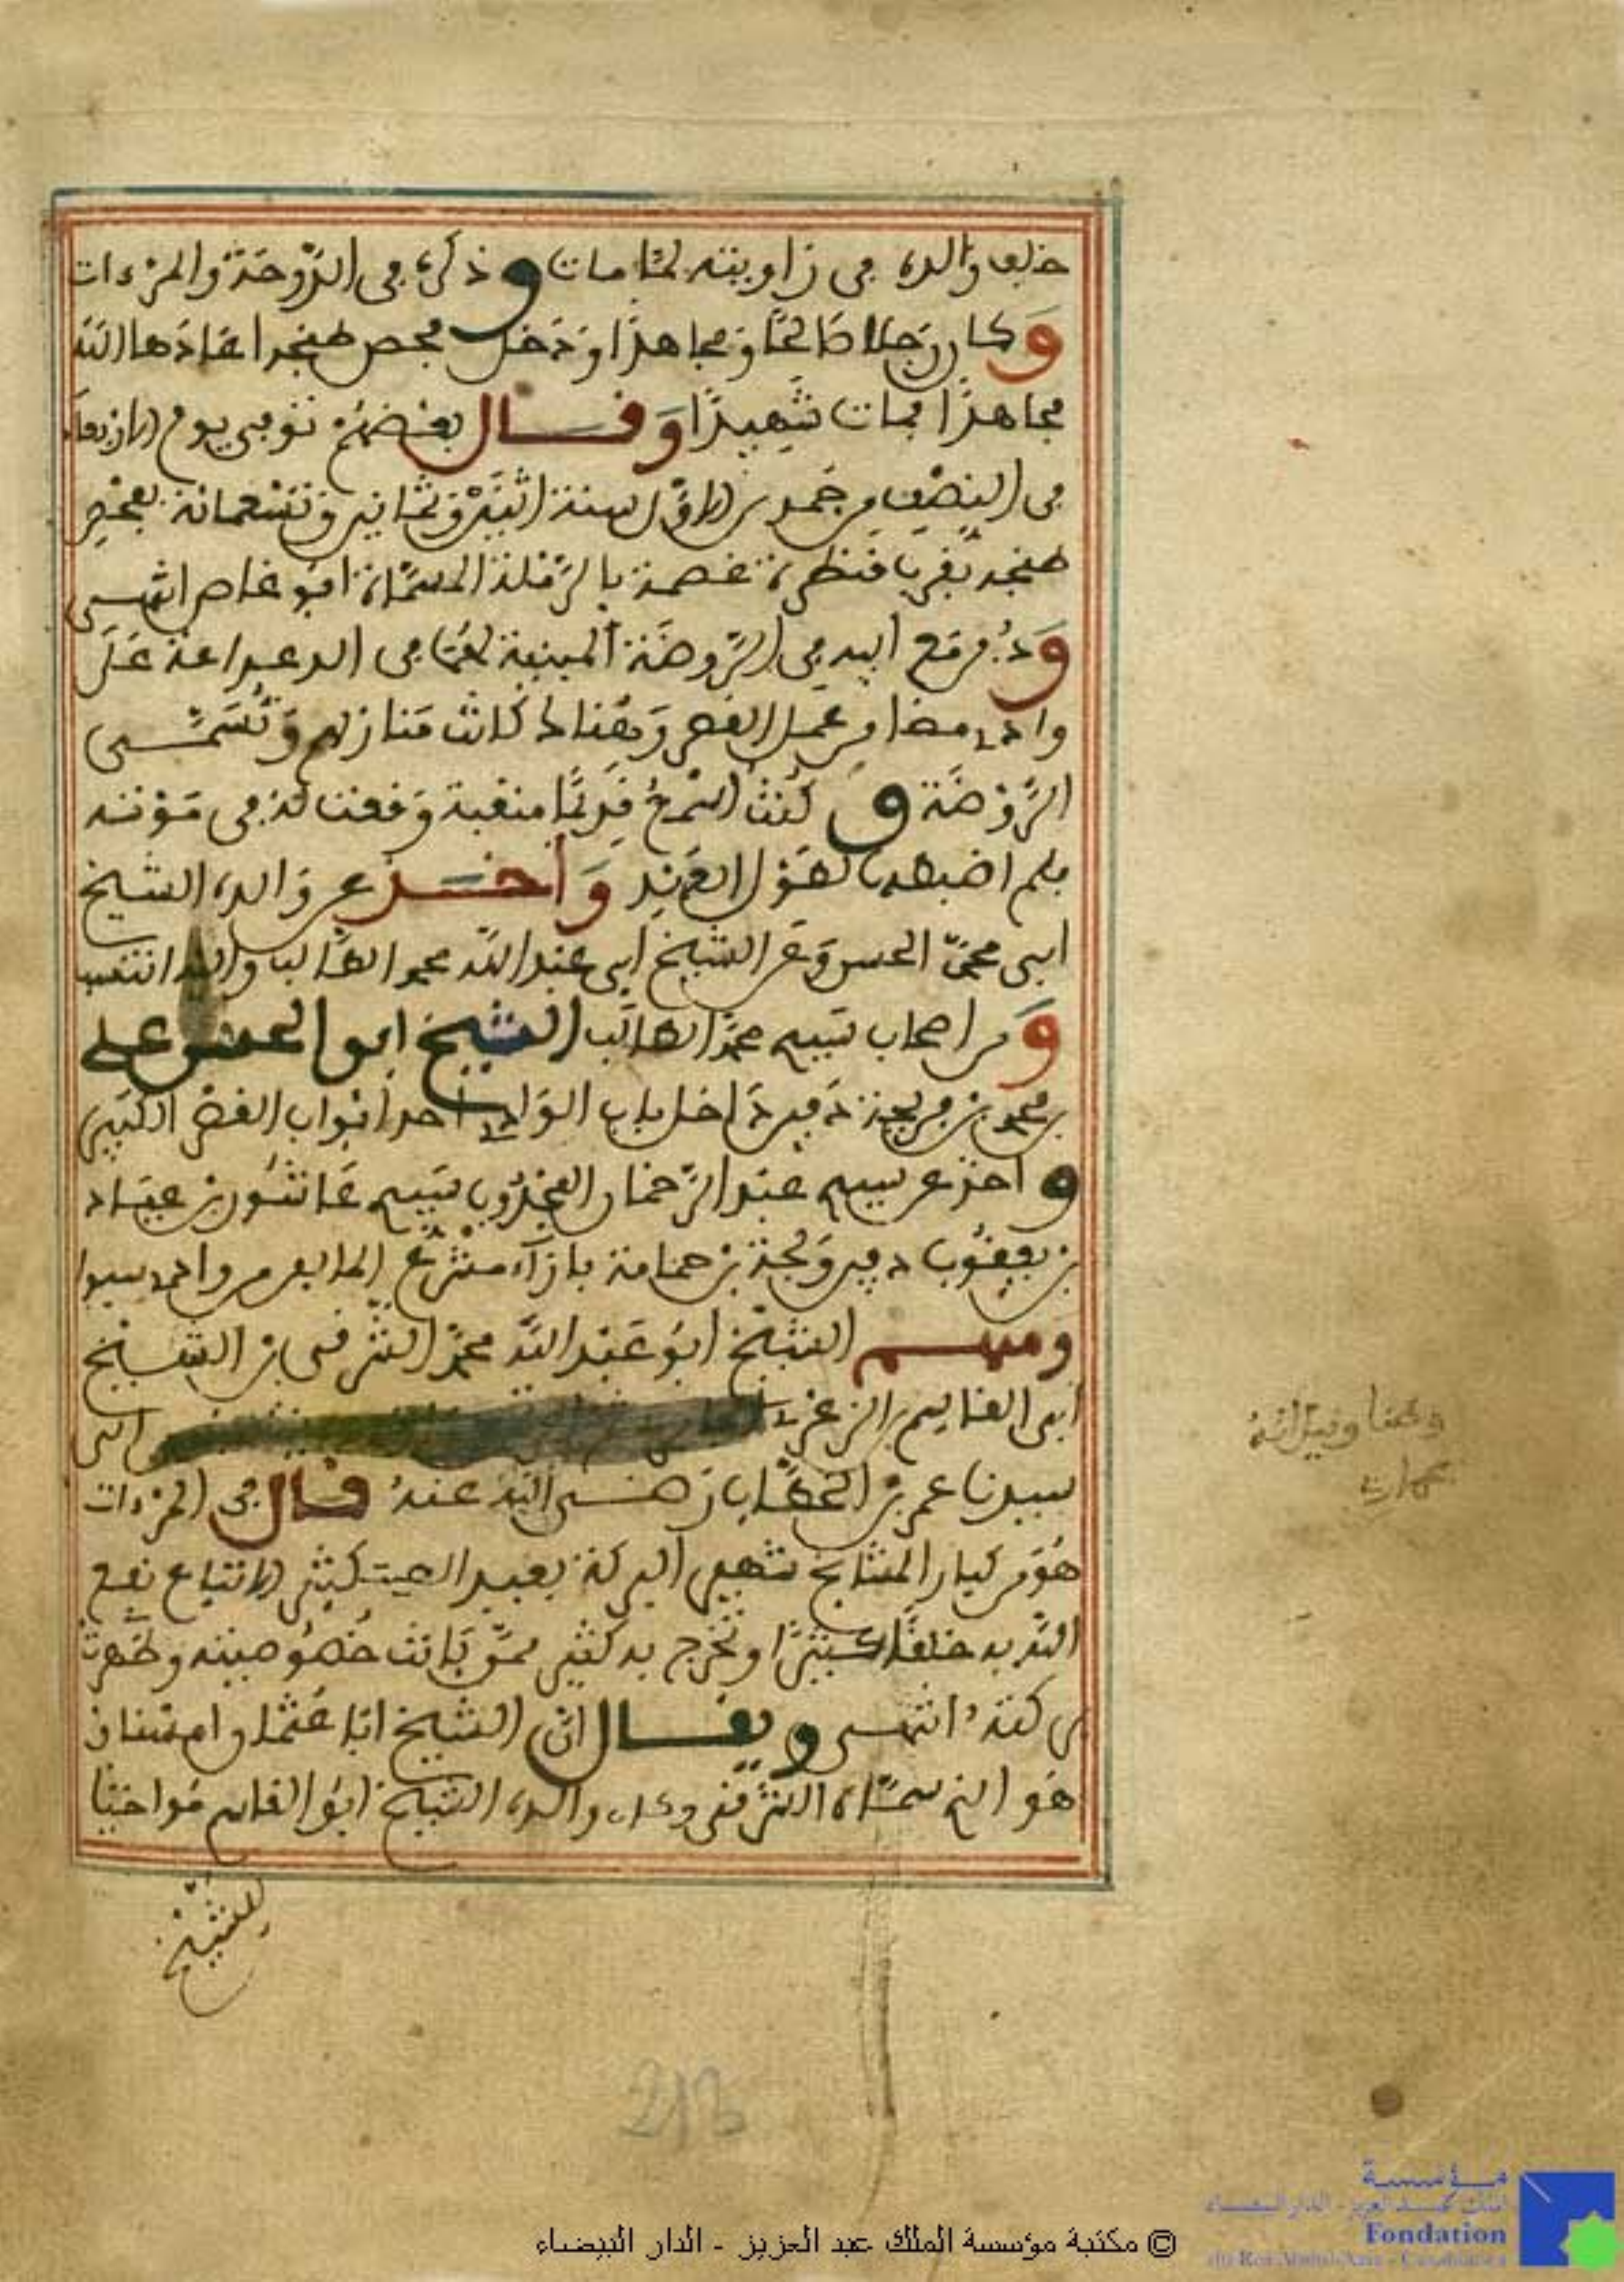 خلف والده في زاويته لما مات وذكره في الدوحة والمرءات
وكان رجلا صالحا ومجاهدا ودخل فحص طنجة اعادها الله
مجاهدا فمات شهيدا وقال بعضهم توفي يوم الاربعاء
في النصف من جمدى الاول سنة اثنين وثمانين وتسعمائة بفحص
طنجة بقرب قنطرة عصمة بالرملة المسماة ابو عاصم انتهى
ودفن مع ابيه في الروضة المبنية لهما في الدعداعة على
واد مضا من عمل القصر وهنالك كانت منازلهم وتسمى
الروضة وكنت اسمع قديما منقبة وقعت له في موته
فلم اضبطها لطول العهد واخذ عن والده الشيخ
ابي محمد الحسن وعن الشيخ ابي عبد الله محمد الطالب واليه انتسب
ومن اصحاب سيدي محمد الطالب الشيخ ابو الحسن علي
بن محمد بن فريجة دفين داخل باب الواد احد ابواب القصر الكبير
واخذ عن سيدي عبد الرحمان المجذوب سيدي عاشور بن عياد
بن يعقوب دفين ولجة بن حمامة بازاء مشرع من واد سبوا
ومنهم الشيخ ابو عبد الله محمد الشرقي بن الشيخ
ابي القاسم الزعري والى
سيدنا عمر بن الخطاب رضي الله عنه قال في المرءات
هو من كبار المشايخ شهير البركة بعيد الصيت كثير الاتباع نفع
الله به خلقا كثيرا وتخرج به كثير ممن بانت خصوصيته وظهرت
بركته انتهى ويقال ان الشيخ ابا عثمان امسناو
هو الذي سماه الشرقي وكان والده الشيخ ابو القاسم مواخيا
للشيخ
213
© مكتبة مؤسسة الملك عبد العزيز - الدار البيضاء
مؤسسة
الملك عبد العزيز - الدار البيضاء
Fondation
du Roi Abdul-Aziz - Casablanca